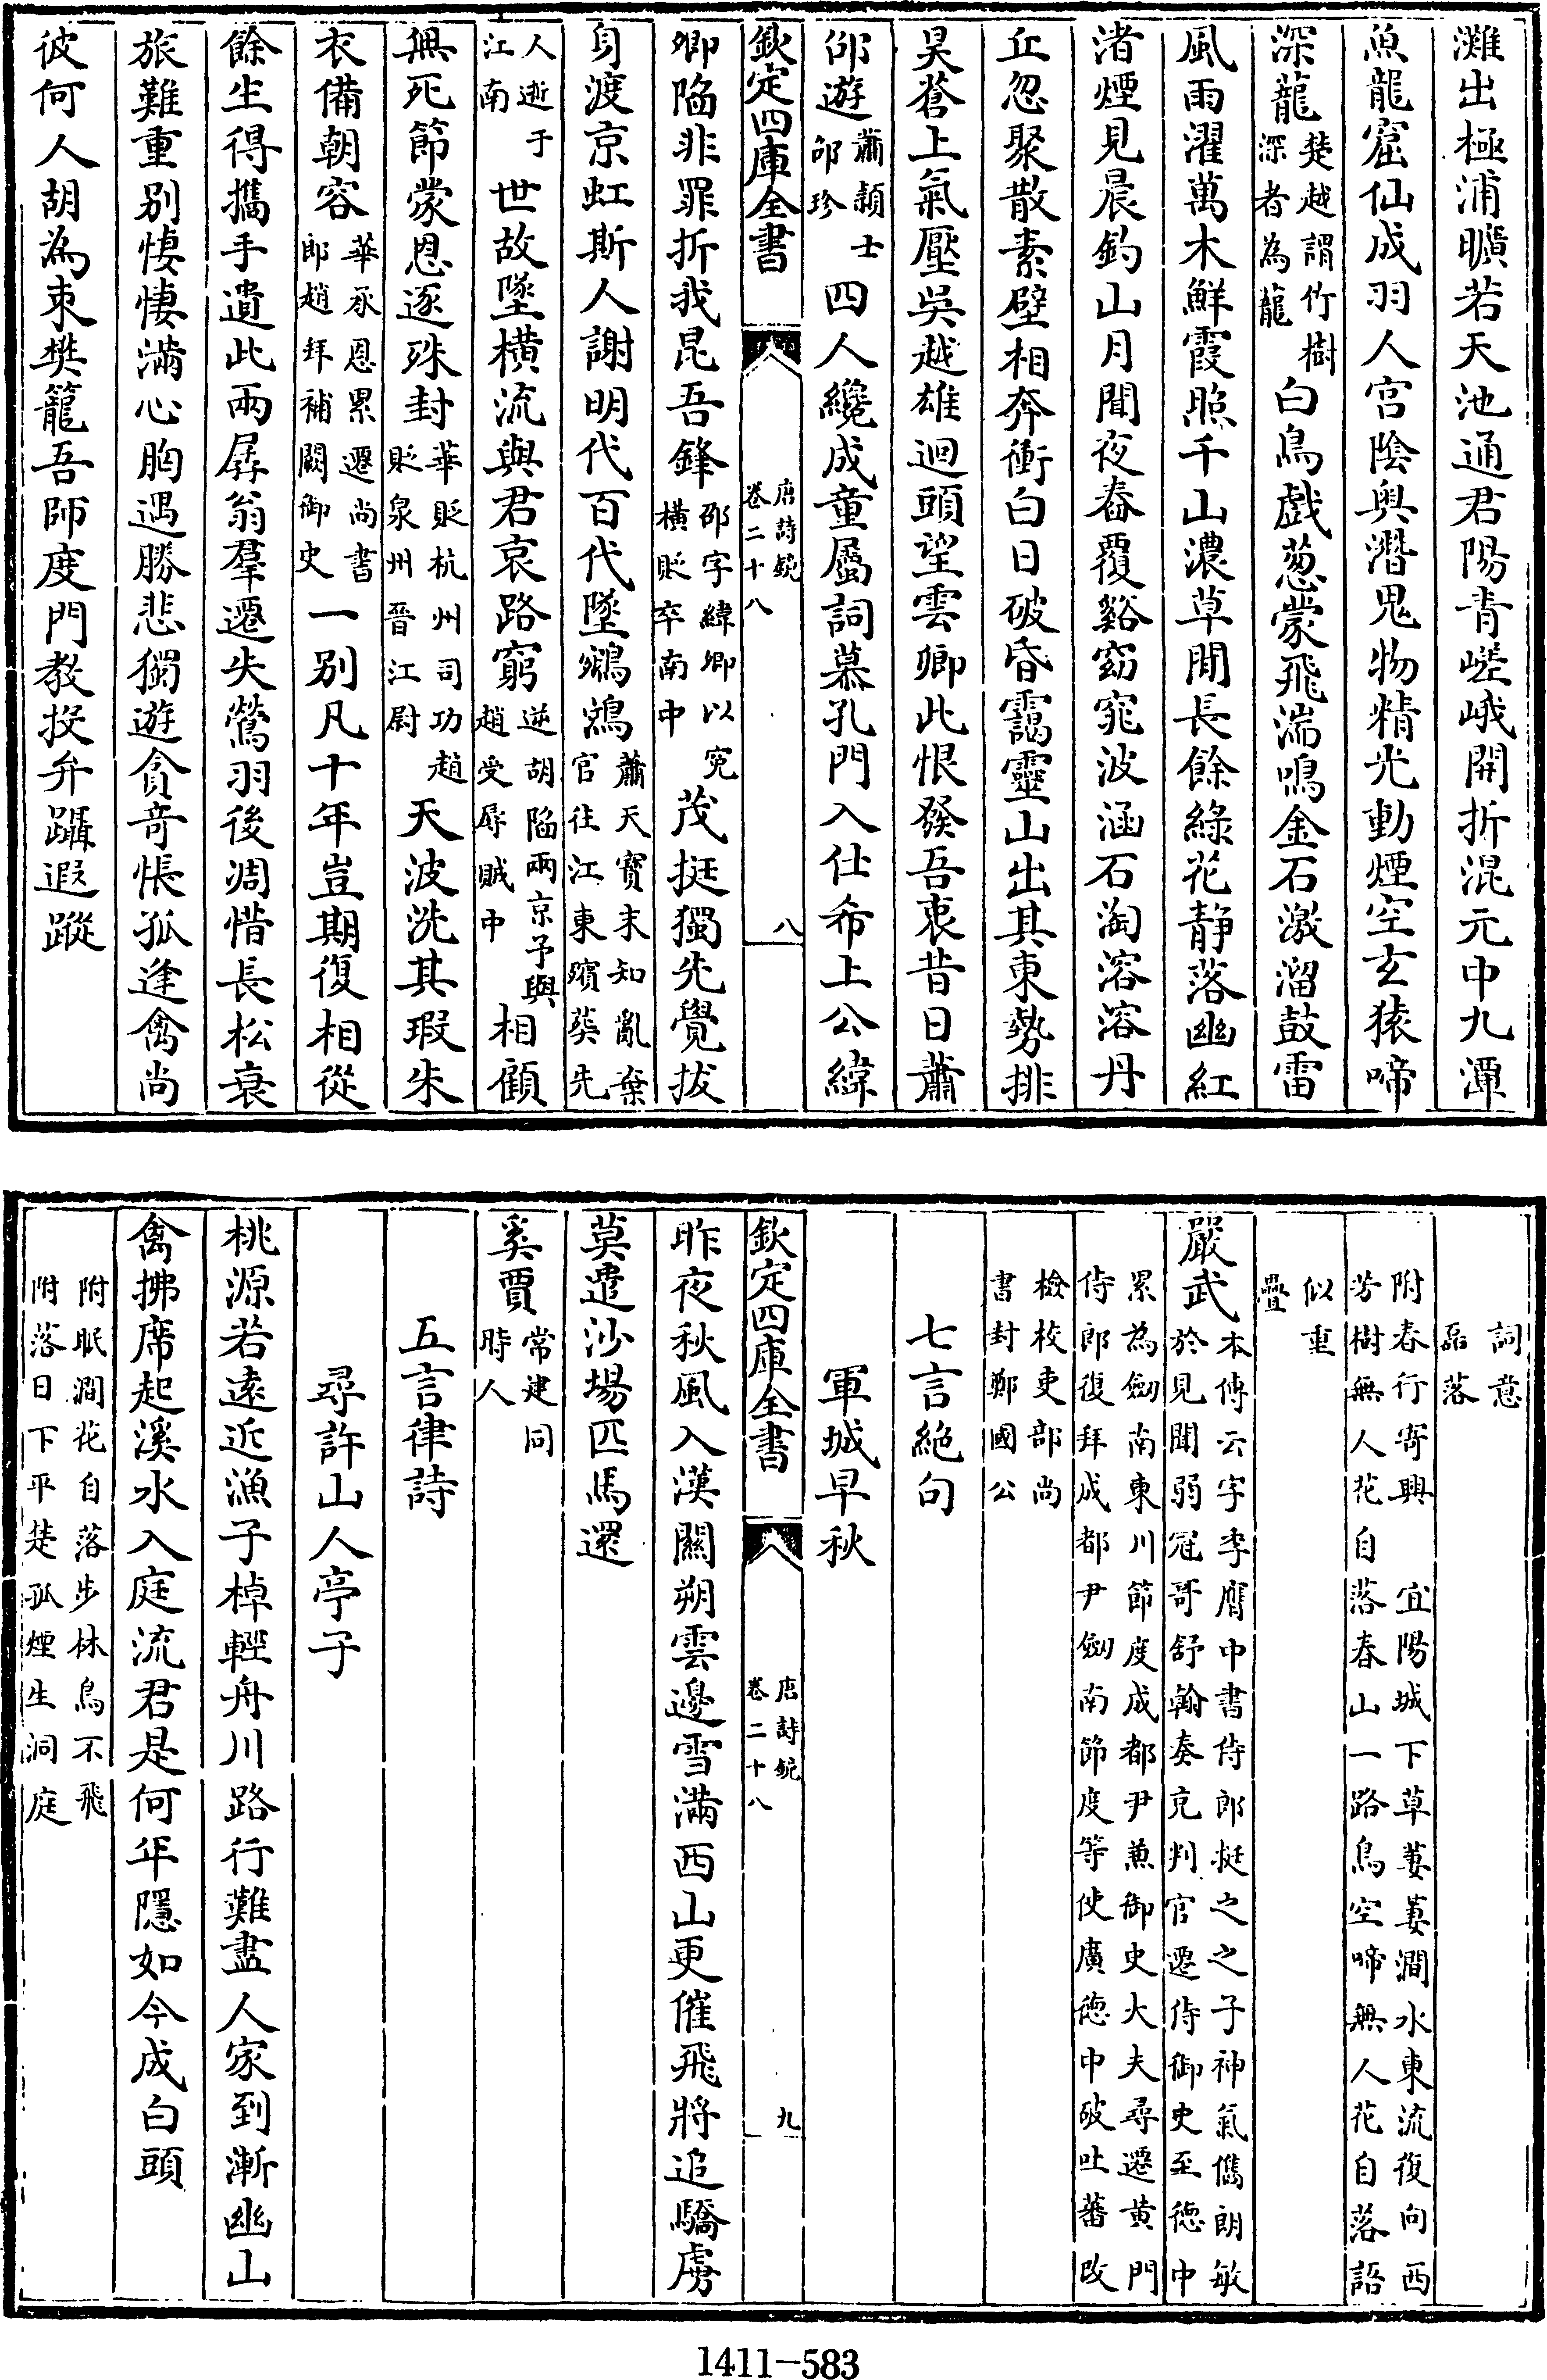 灘出極浦曠若天池通君陽青嵯峨開折混元中九潭
魚龍窟仙成羽人宫陰奥潛鬼物精光動煙空玄猿啼
深蘢楚越謂竹樹深者為蘢白鳥戲葱蒙飛湍鳴金石激溜鼓雷
風雨濯萬木鮮霞照千山濃草閒長餘緑花静落幽紅
渚煙見晨釣山月聞夜舂覆谿窈窕波涵石淘溶溶丹
丘忽聚散素壁相奔衝白日破昏靄靈山出其東勢排
昊蒼上氣壓吳越雄迴頭望雲卿此恨發吾衷昔日蕭
邵遊蕭頴士邵珍四人纔成童屬詞慕孔門入仕希上公緯
欽定四庫全書
唐詩鏡
卷二十八
八
卿陷非罪折我昆吾鋒邵字緯卿以寃横貶卒南中茂挺獨先覺拔
身渡京虹斯人謝明代百代墜鵷鴻蕭天寶末知亂棄官往江東殯葬先
人逝于江南世故墜横流與君哀路窮逆胡陷兩京予與趙受辱賊中相顧
無死節蒙恩逐殊封華貶杭州司功趙貶泉州晉江尉天波洗其瑕朱
衣備朝容華承恩累遷尚書郎趙拜補闕御史一别凡十年豈期復相從
餘生得攜手遺此兩孱翁羣遷失鶯羽後凋惜長松衰
旅難重别悽悽滿心胸遇勝悲獨遊貪奇悵孤逢禽尚
彼何人胡為束樊籠吾師度門教投弁躡遐蹤
詞意磊落
附春行寄興　宜陽城下草萋萋澗水東流復向西
芳樹無人花自落春山一路鳥空啼無人花自落語
似重疊
嚴武本傳云字季膺中書侍郎挺之之子神氣儁朗敏於見聞弱冠哥舒翰奏充判官遷侍御史至德中
累為劒南東川節度成都尹兼御史大夫尋遷黄門侍郎復拜成都尹劒南節度等使廣德中破吐蕃改
檢校吏部尚書封鄭國公
七言絶句
軍城早秋
欽定四庫全書
唐詩鏡
卷二十八
九
昨夜秋風入漢關朔雲邊雪滿西山更催飛將追驕虜
莫遣沙場匹馬還
奚賈常建同時人
五言律詩
尋許山人亭子
桃源若遠近漁子棹輕舟川路行難盡人家到漸幽山
禽拂席起溪水入庭流君是何年隱如今成白頭
附眠澗花自落步林鳥不飛
附落日下平楚孤煙生洞庭
1411-583